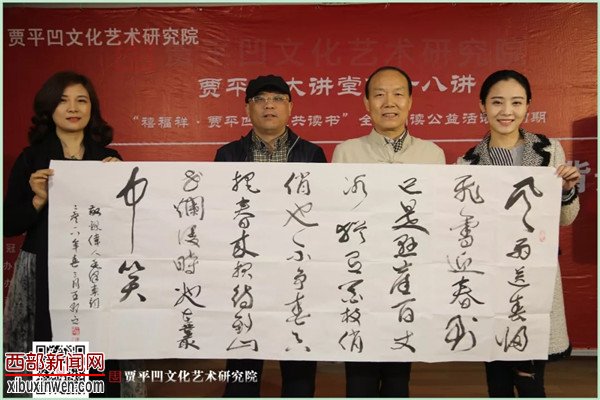 贾平凹文化艺术研究院
贾平 大讲堂 十八讲
“禧福祥·贾平凹 共读书”全 读公益活动 期
风雨送春归
飞雪迎春到
已是悬崖百丈
冰犹有花枝俏
俏也不争春只
把春来报待到山
花爛漫時她在叢
中笑
敬录伟人咏梅词
二零一八年春三月
西部新闻网
xibuxinwen.com
贾平凹文化艺术研究院